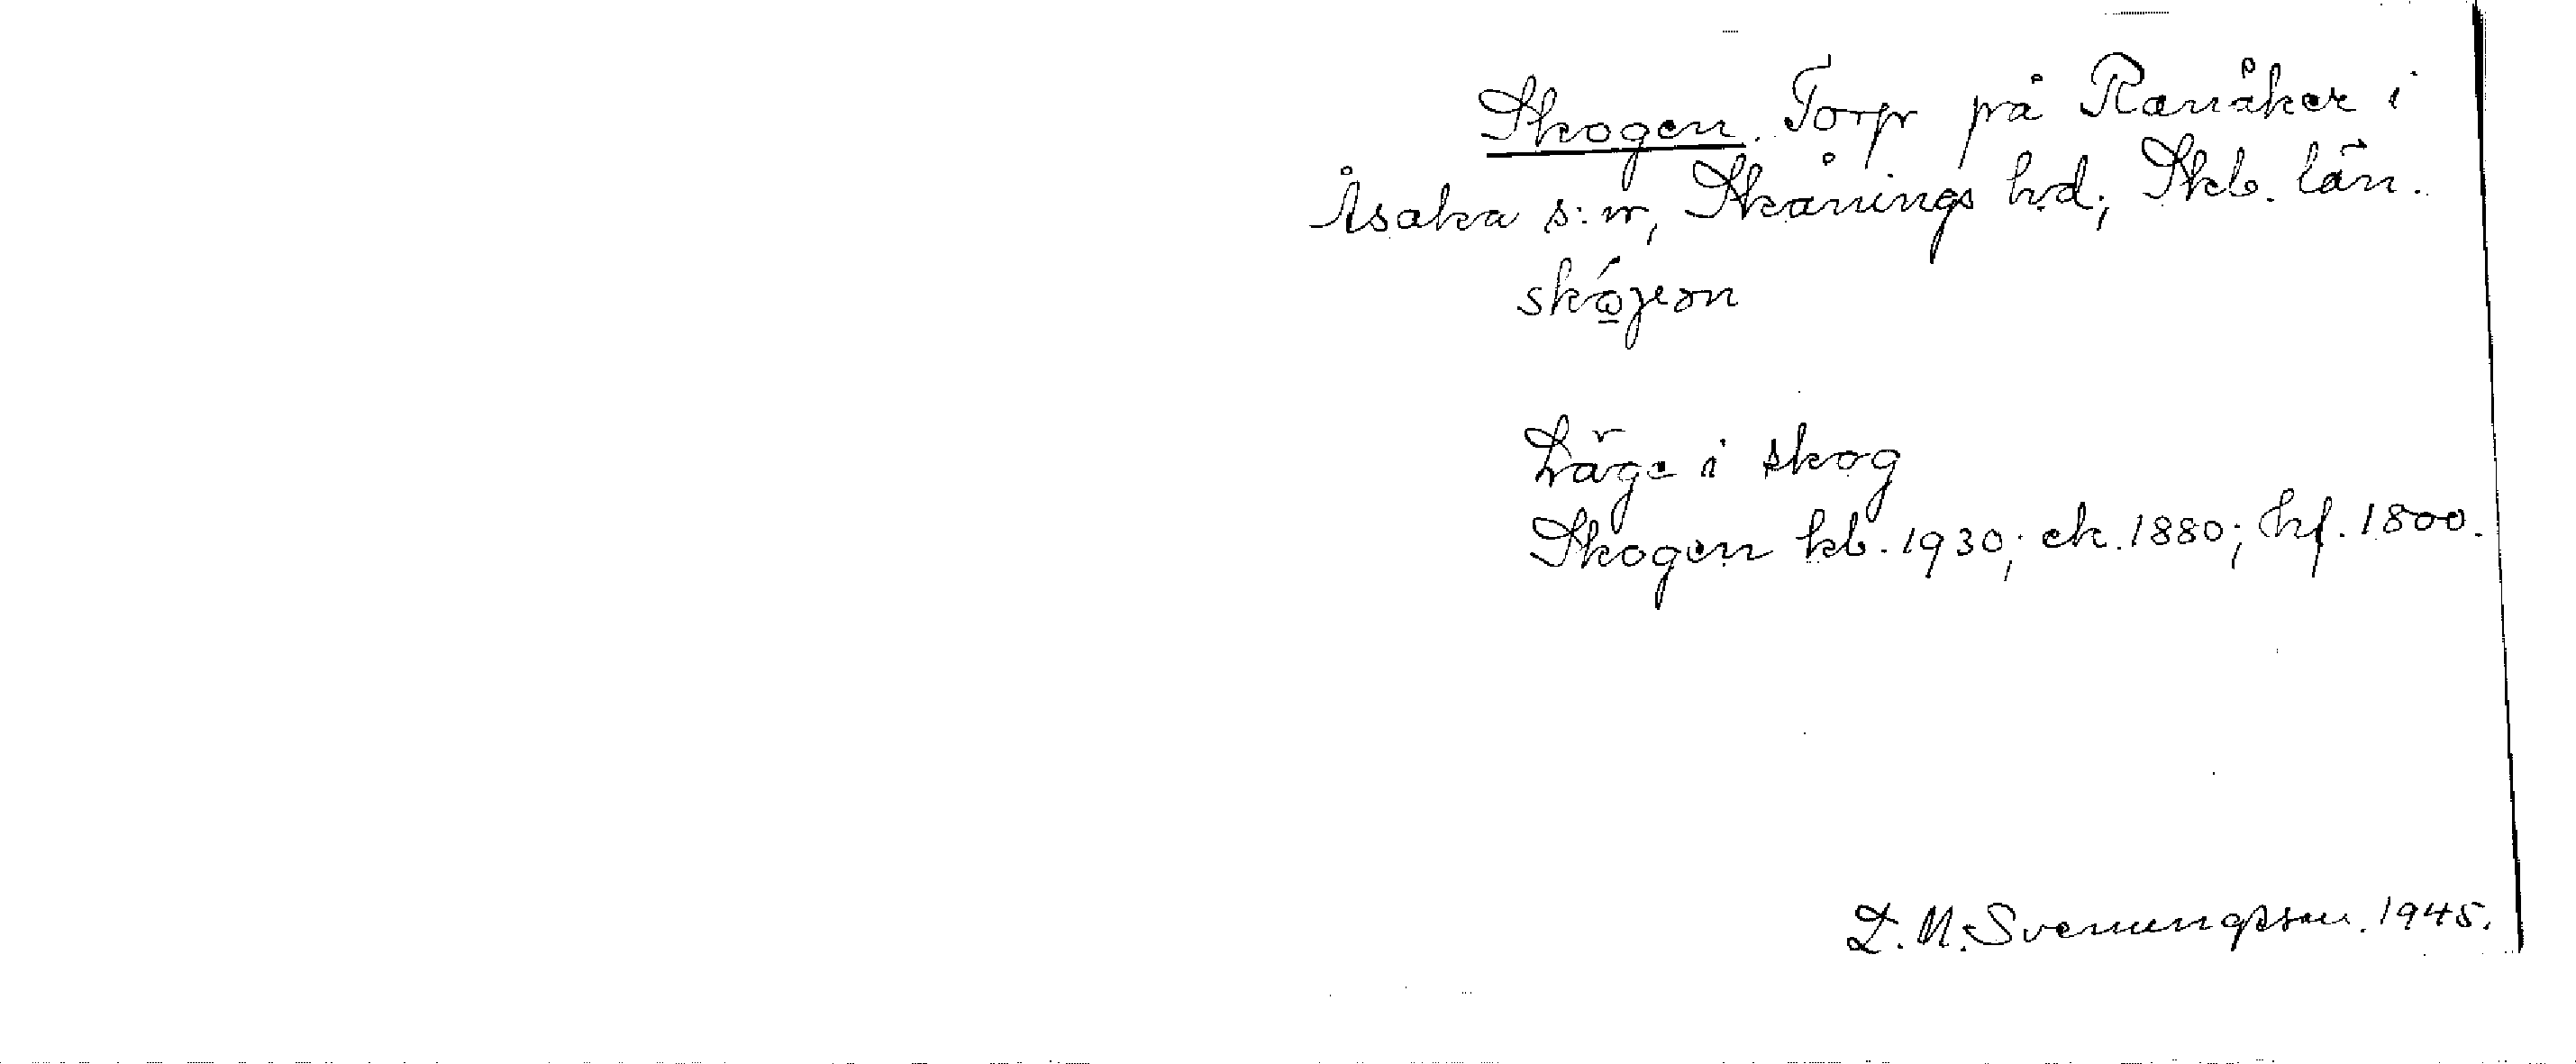 Skogen. Torp på Ranåker i
Åsaka s:n, Skånings hd; Skb. län.
Läge i skog
Skogen kb. 1930; ek. 1880; hf. 1800.
D. N. Svenungsson. 1945.